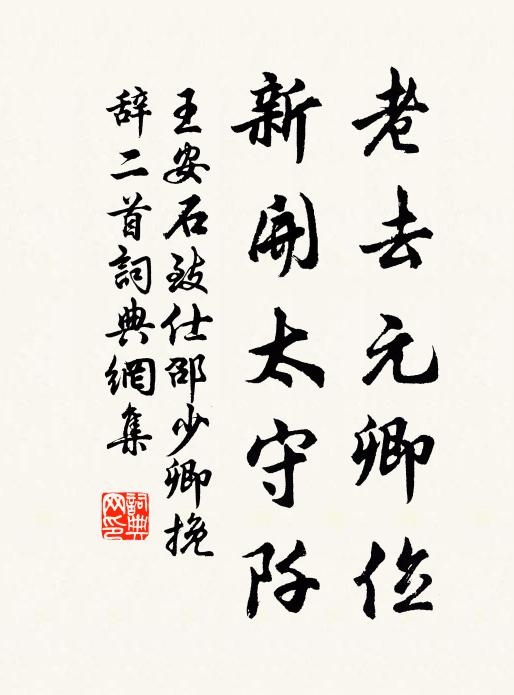 老去元卿位
新開太守阡
王安石致仕邵少卿挽
辞二首詞典網集
詞典网印